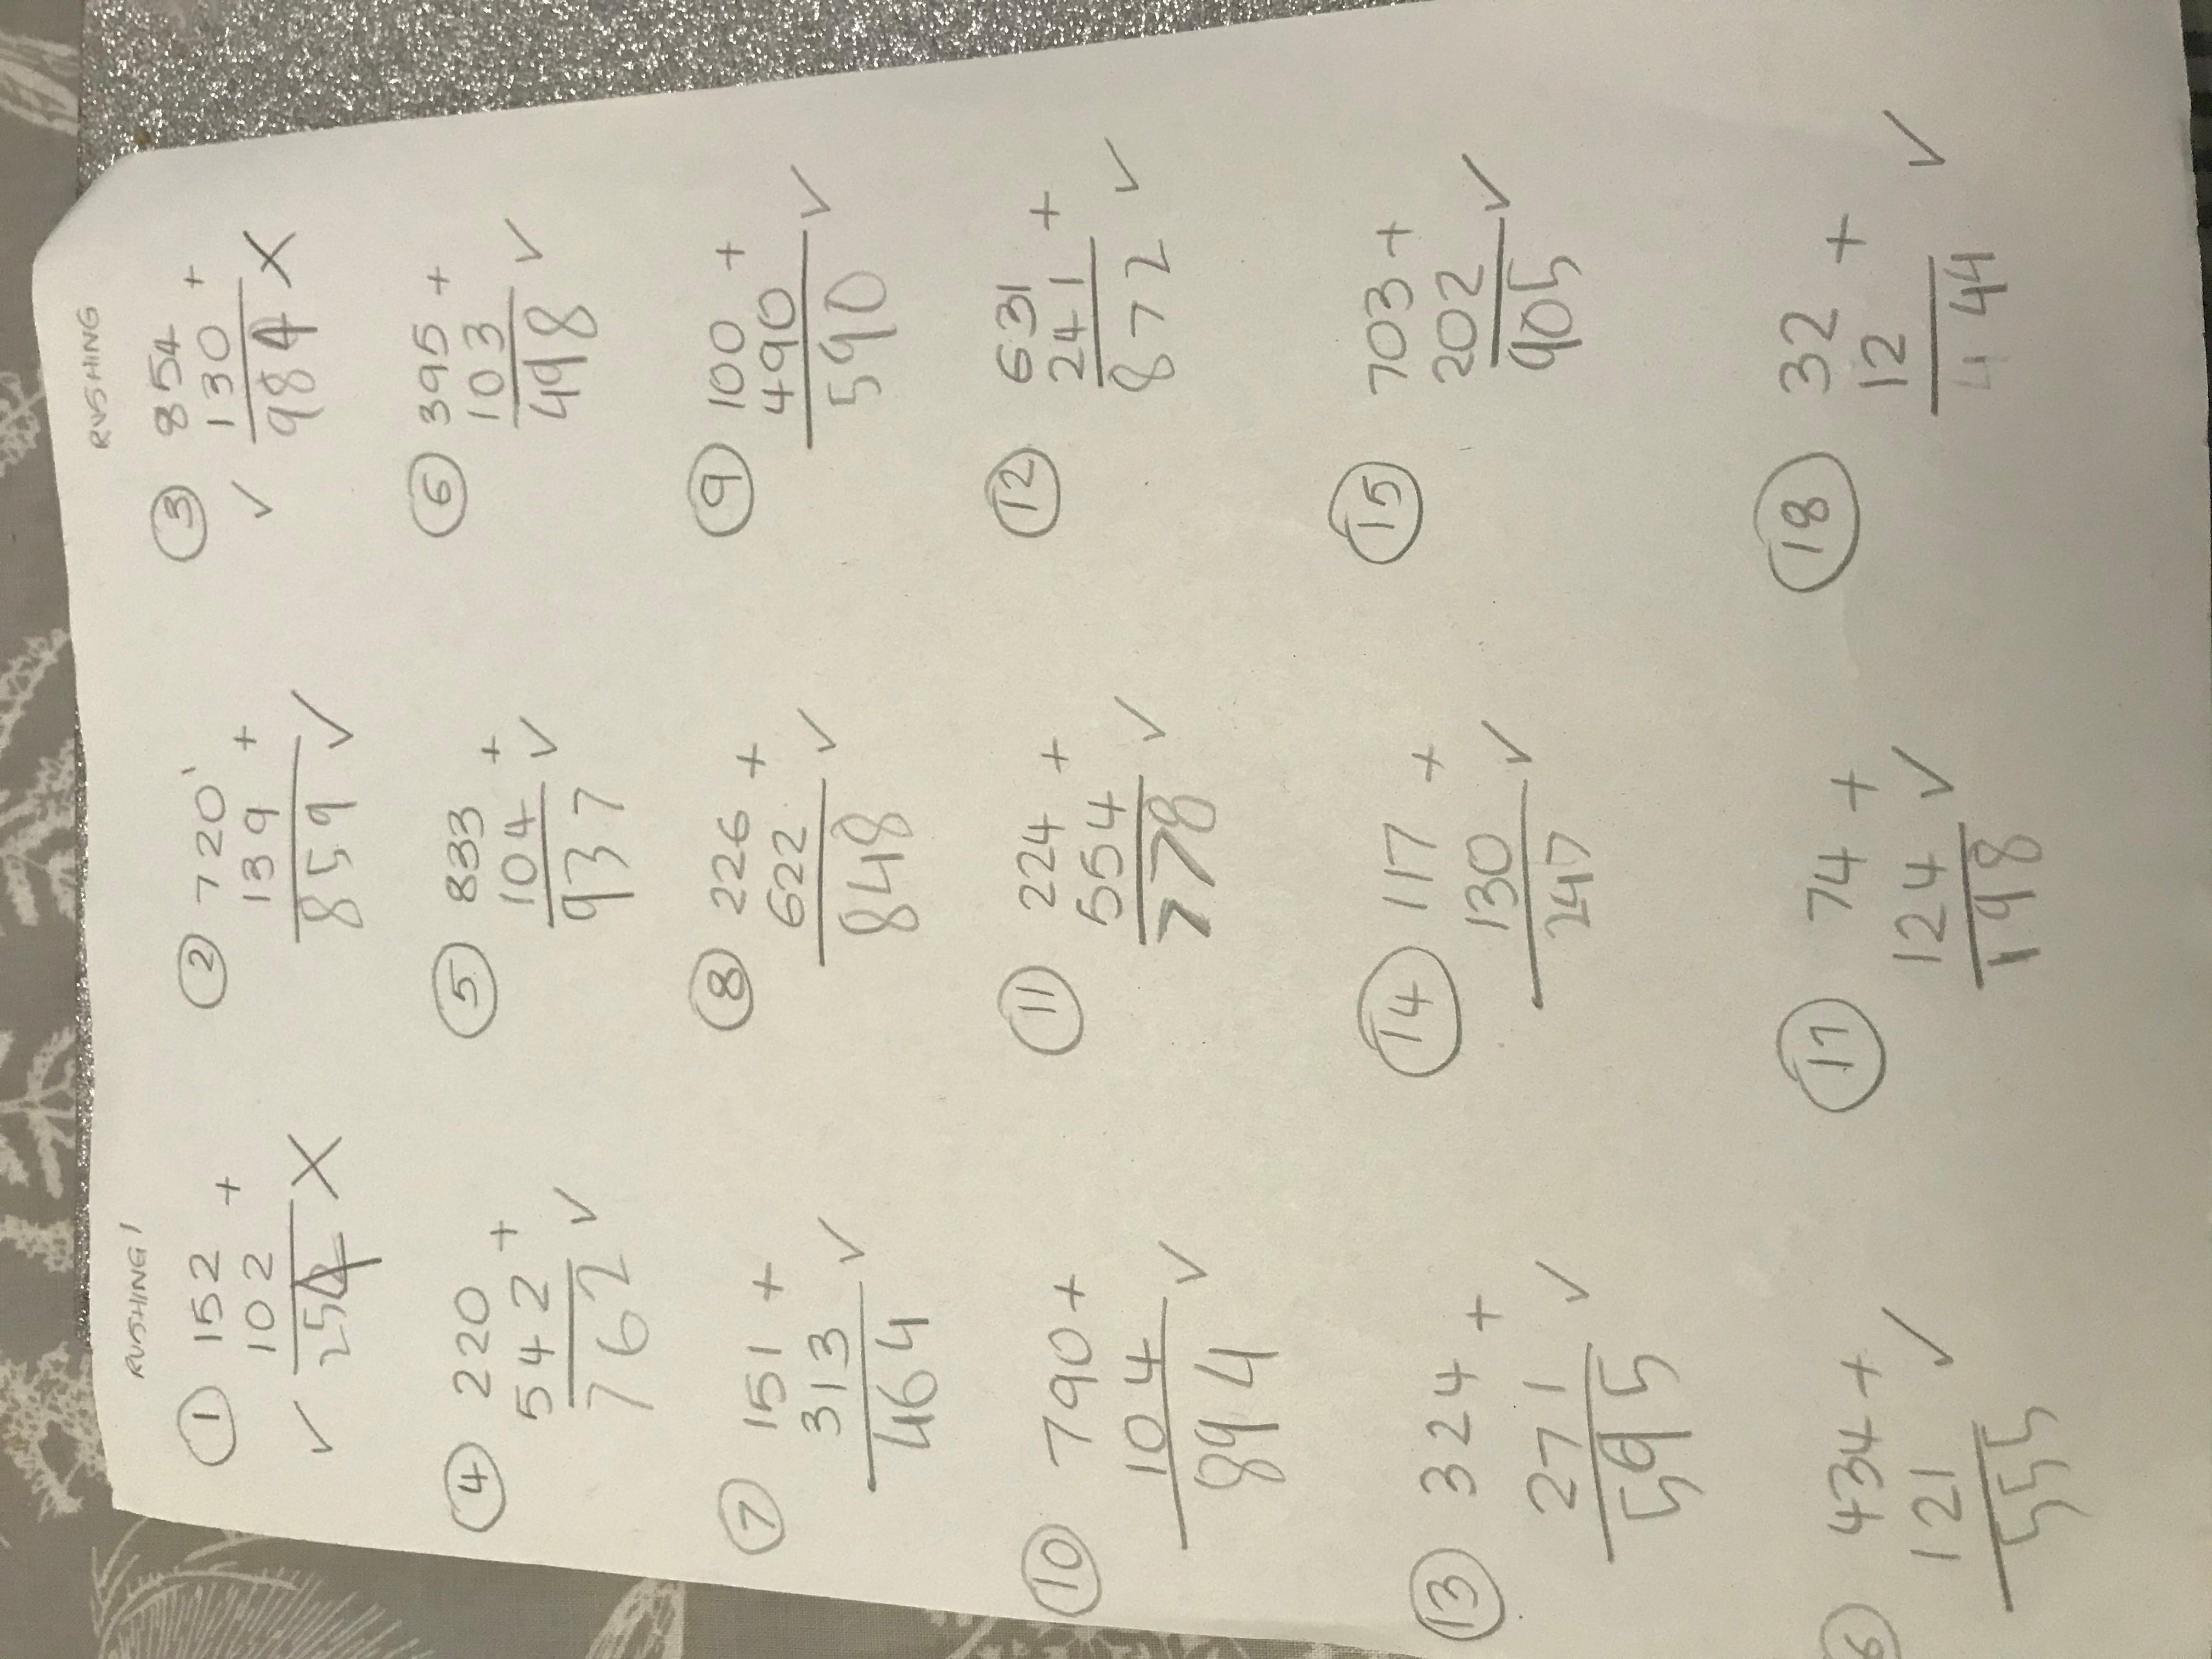 RUSHING! RUSHING
① 152 + ② 720 ③ 854
102 139 + 130 +
✓ 254 X 859 ✓ ✓ 984 X
④ 220 ⑤ 833 ⑥ 395 +
542 + 104 + 103
762 ✓ 937 ✓ 498 ✓
⑦ 151 + ⑧ 226 + ⑨ 100 +
313 622 490
464 ✓ 848 ✓ 590 ✓
⑩ 790 + ⑪ 224 + ⑫ 631 +
104 554 241
894 ✓ 778 ✓ 872 ✓
⑬ 324 + ⑭ 117 + ⑮ 703 +
271 130 202
595 ✓ 247 ✓ 905 ✓
6 434 + ⑰ 74 + ⑱ 32 +
121 124 12
555 ✓ 198 ✓ 44 ✓